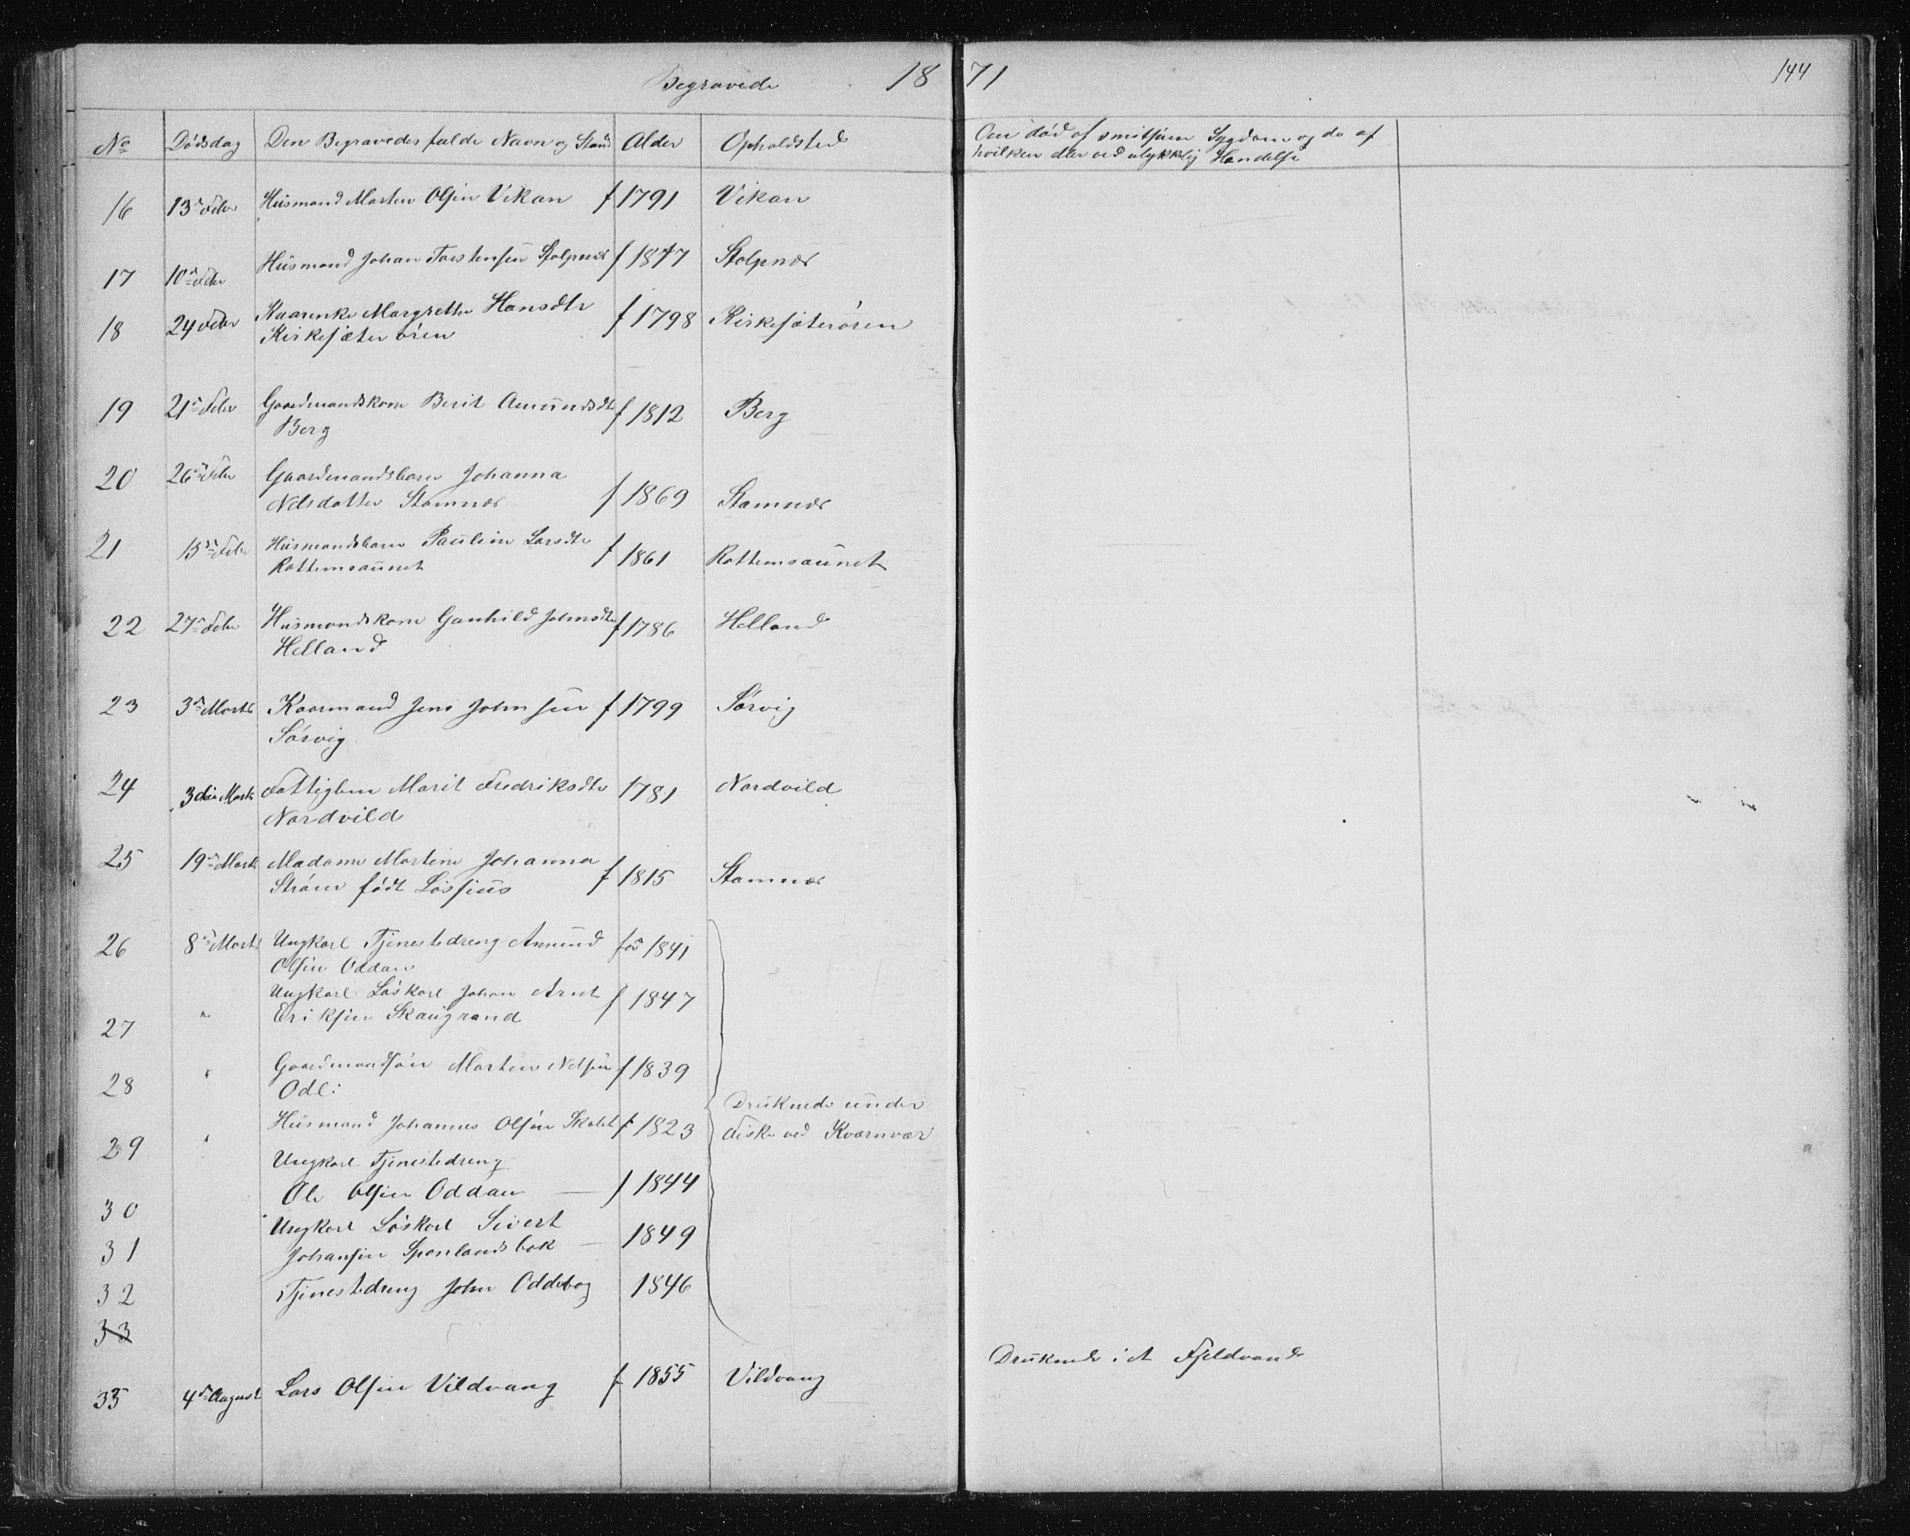 Begravede 1871
144
No Dødsdag Den Begravedes fulde Navn og Stand Alder Opholdsted Om død af smitsom Sygdom og da af
hvilken eller ved ulykkelig Hendelse
16 13de Febr Husmand Morten Olsen Vikan f 1791 Vikan
17 10de Febr Husmand Johan Torstensen Stolpnes f 1847 Stolpnes
18 24 Febr Kaarenke Margrethe Hansdtr f 1798 Kirkesæterøren
Kirkesæterøren
19 21de Febr Gaardmandskone Berit Amundsdtr f 1812 Berg
Berg
20 26de Febr Gaardmandsbarn Johanna
Nilsdatter Stamnes f 1869 Stamnes
21 15de Febr Husmandsbarn Pauline Larsdtr f 1861 Rottemsaunet
Rottemsaunet
22 27de Febr Husmandskone Gunhild Johnsdtr f 1786 Helland
Helland
23 3de Marts Kaarmand Jens Johnsen f 1799 Sørvig
Sørvig
24 3die Marts Fattiglem Marit Fredriksdtr 1781 Nordvild
Nordvild
25 19de Marts Madame Martine Johanna
Strøm født Lossius f 1815 Stamnes
26 8de Marts Ungkarl Tjenestedreng Amund fød 1841
Olsen Oddan
27 " Ungkarl Løskarl Johan Arnt f 1847
Eriksen Skaugrand
28 " Gaardmandsøn Morten Nilsen f 1839
Odl:
29 " Husmand Johannes Olsen Skalet f 1823
Druknede under
Fiske ved Kværnvær
30 Ungkarl Tjenestedreng
Ole Olsen Oddan — f 1844
31 Ungkarl Løskarl Sivert
Johansen Spenlandsbak — 1849
32 Tjenestedreng John Oddebog 1846
33
35 4de August Lars Olsen Vildvang f 1855 Vildvang Druknede i et Fjeldvand